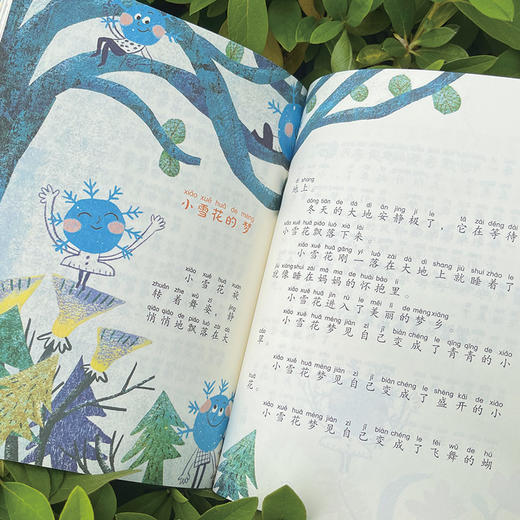 xiǎo xuě huā de mèng
小雪花的梦
xiǎo xuě huā
小雪花
zhuǎn zhe wǔ zī jìng
转着舞姿，静
qiāo qiāo de piāo luò zài dà
悄悄地飘落在大
dì shang
地上。
dōng tiān de dà dì ān jìng jí le tā zài děng dài
冬天的大地安静极了，它在等待
xiǎo xuě huā piāo luò xià lái
小雪花飘落下来
xiǎo xuě huā gāng yí luò zài dà dì shang jiù shuì zháo le
小雪花刚一落在大地上就睡着了
jiù xiàng shuì zài mā ma de huái bào li
就像睡在妈妈的怀抱里。
xiǎo xuě huā jìn rù le měi lì de mèng xiāng
小雪花进入了美丽的梦乡。
xiǎo xuě huā mèng jiàn zì jǐ biàn chéng le qīng qīng de xiǎo
小雪花梦见自己变成了青青的小
cǎo
草。
xiǎo xuě huā mèng jiàn zì jǐ biàn chéng le shèng kāi de xiǎo
小雪花梦见自己变成了盛开的小
huā
花。
xiǎo xuě huā mèng jiàn zì jǐ biàn chéng le fēi wǔ de hú
小雪花梦见自己变成了飞舞的蝴